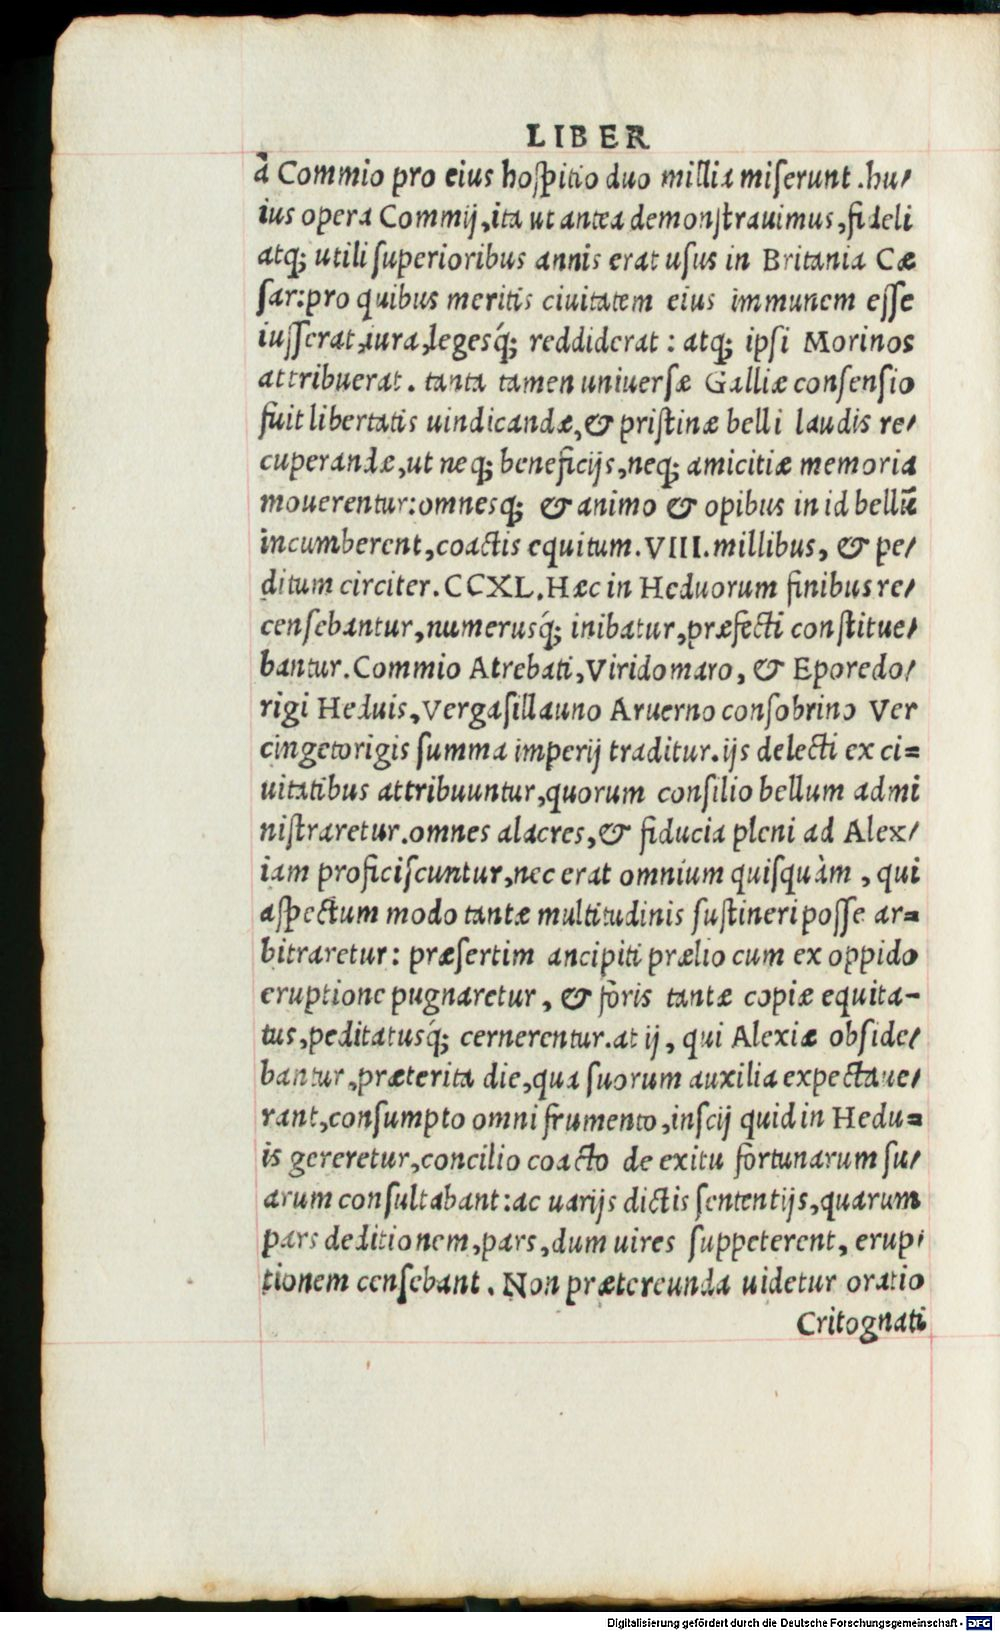 LIBER
à Commio pro eius hospitio duo millia miserunt .hu/
ius opera Commij, ita ut antea demonstrauimus, fideli
atq; utili superioribus annis erat usus in Britania Cæ
sar: pro quibus meritis ciuitatem eius immunem esse
iusserat, iura, legesq́; reddiderat : atq; ipsi Morinos
attribuerat. tanta tamen uniuersæ Galliæ consensio
fuit libertatis uindicandæ, & pristinæ belli laudis re/
cuperandæ, ut neq; beneficijs, neq; amicitiæ memoria
mouerentur: omnesq; & animo & opibus in id bellũ
incumberent, coactis equitum. VIII. millibus, & pe/
ditum circiter. CCXL. Hæc in Heduorum finibus re/
censebantur, numerusq́; inibatur, præfecti constitue/
bantur. Commio Atrebati, Viridomaro, & Eporedo/
rigi Heduis, Vergasillauno Aruerno consobrino Ver
cingetorigis summa imperij traditur. ijs delecti ex ci=
uitatibus attribuuntur, quorum consilio bellum admi
nistraretur. omnes alacres, & fiducia pleni ad Alex/
iam proficiscuntur, nec erat omnium quisquàm , qui
aspectum modo tantæ multitudinis sustineri posse ar=
bitraretur: præsertim ancipiti prælio cum ex oppido
eruptione pugnaretur , & foris tantæ copiæ equita-
tus, peditatusq́; cernerentur. at ij, qui Alexiæ obside/
bantur, præterita die, qua suorum auxilia expectaue/
rant, consumpto omni frumento, inscij quid in Hedu=
is gereretur, concilio coacto de exitu fortunarum su/
arum consultabant: ac uarijs dictis sententijs, quarum
pars deditionem, pars, dum uires suppeterent, erup/
tionem censebant. Non prætereunda uidetur oratio
Critognati
Digitalisierung gefördert durch die Deutsche Forschungsgemeinschaft - DFG